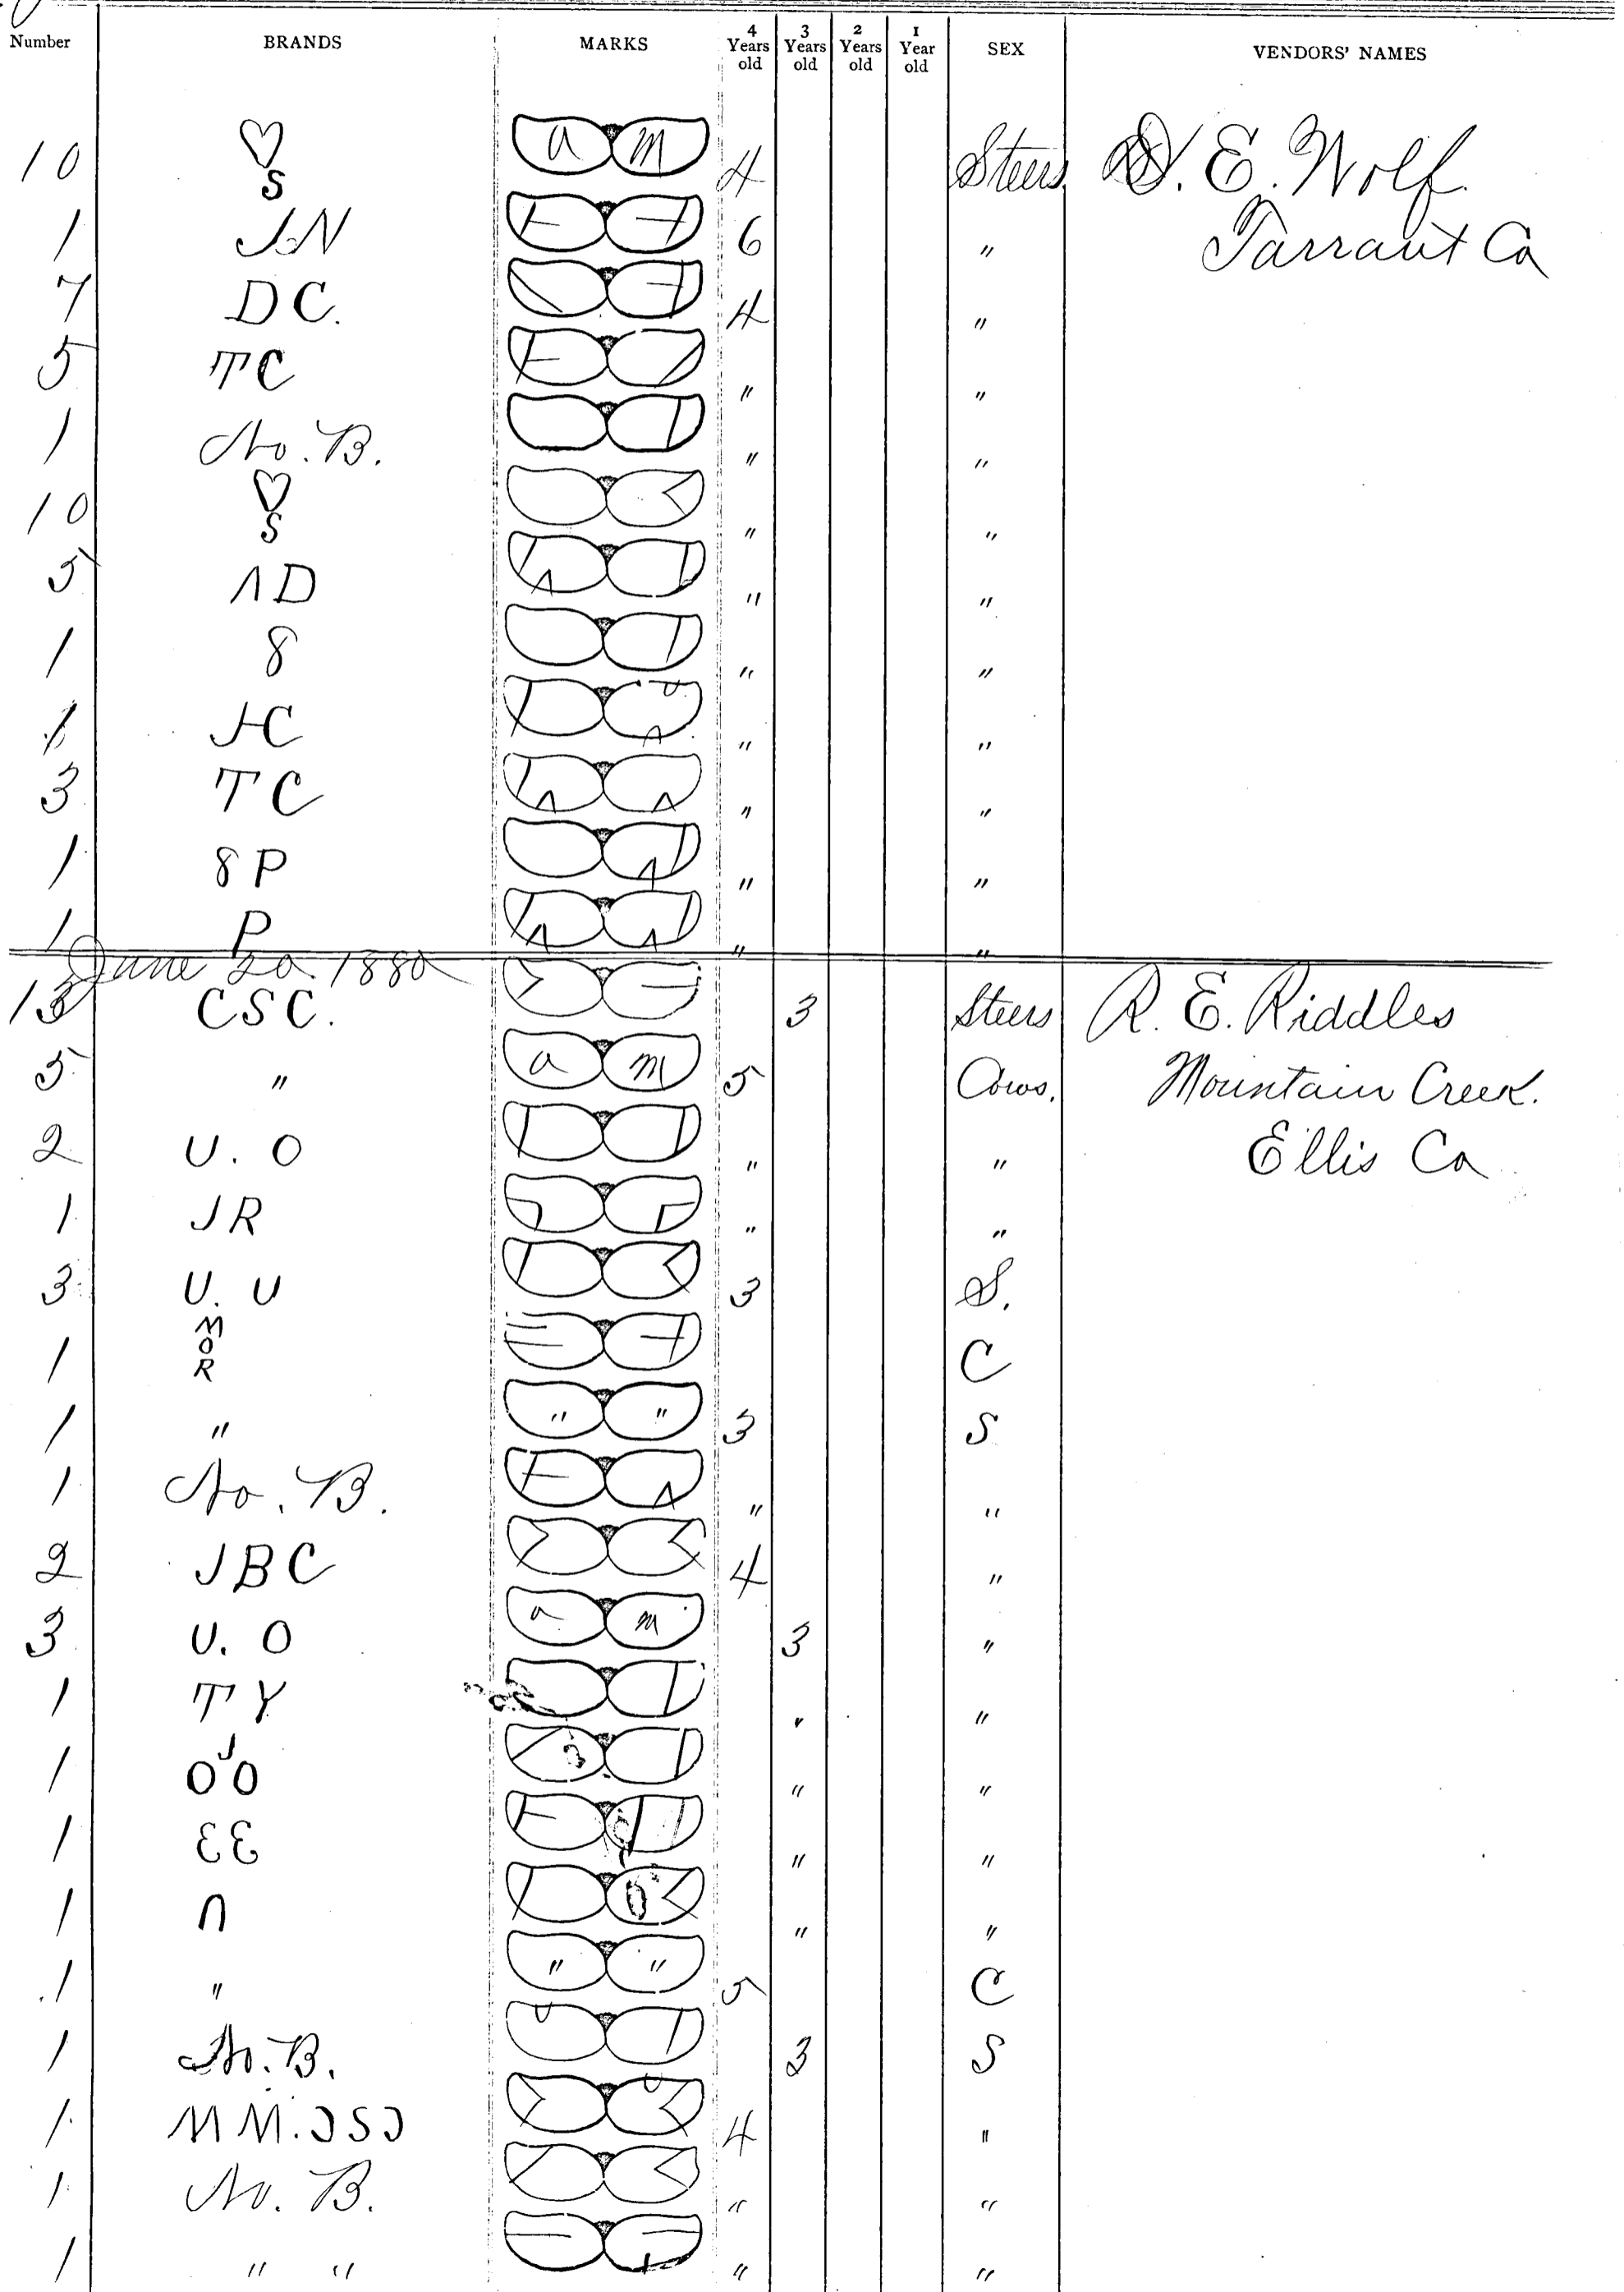 Number BRANDS MARKS 4 Years old 3 Years old 2 Years old 1 Year old SEX VENDORS' NAMES
10 ♡ S a m 4 Steers D. E. Wolf.
1 JN 6 " Tarrant Co
7 DC. 4 "
5 TC " "
1 No. B. " "
10 ♡ S " "
5 ΛD " "
1 8 " "
1 JC " "
3 TC " "
1 8P " "
1 P " "
June 20 1880
13 CSC. 3 Steers R. E. Riddles
5 " a m 5 Cows. Mountain Creek.
2 U. O " " Ellis Co
1 JR " "
3 U. U 3 S.
1 M O R C
1 " " " 3 S
1 No. B. " "
2 JBC 4 "
3 U. O a m 3 "
1 TY " "
1 OJO " "
1 ƐƐ " "
1 ∩ " "
1 " " " 5 C
1 No. B. 3 S
1 MM. ƆSƆ 4 "
1 No. B. " "
1 " " " "